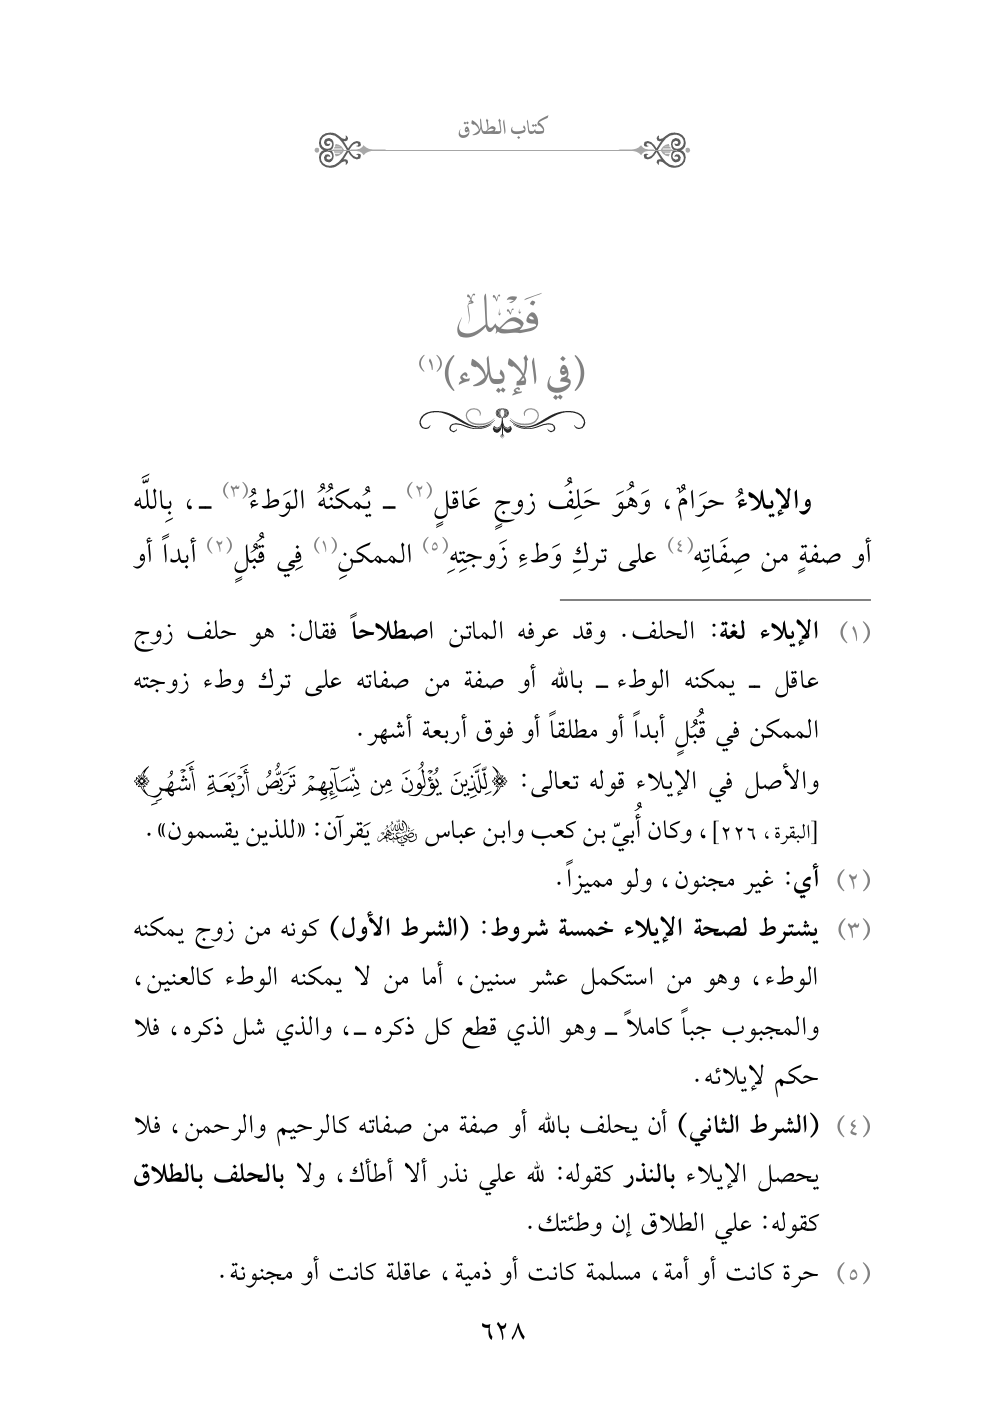 كتاب الطلاق
فَصْلٌ
(في الإيلاء)(١)
والإيلاءُ حرَامٌ، وَهُوَ حَلِفُ زوجٍ عَاقلٍ(٢) ـ يُمكنُهُ الوَطءُ(٣) ـ، بِاللَّه
أو صفةٍ من صِفَاتِه(٤) على تركِ وَطءِ زَوجتِهِ(٥) الممكنِ(١) فِي قُبُلٍ(٢) أبداً أو
(١) الإيلاء لغة: الحلف. وقد عرفه الماتن اصطلاحاً فقال: هو حلف زوج
عاقل ـ يمكنه الوطء ـ بالله أو صفة من صفاته على ترك وطء زوجته
الممكن في قُبُلٍ أبداً أو مطلقاً أو فوق أربعة أشهر.
والأصل في الإيلاء قوله تعالى: ﴿لِّلَّذِينَ يُؤْلُونَ مِن نِّسَآئِهِمْ تَرَبُّصُ أَرْبَعَةِ أَشْهُرٍ﴾
[البقرة، ٢٢٦]، وكان أُبيّ بن كعب وابن عباس رضي الله عنهما يَقرآن: «للذين يقسمون».
(٢) أي: غير مجنون، ولو مميزاً.
(٣) يشترط لصحة الإيلاء خمسة شروط: (الشرط الأول) كونه من زوج يمكنه
الوطء، وهو من استكمل عشر سنين، أما من لا يمكنه الوطء كالعنين،
والمجبوب جباً كاملاً ـ وهو الذي قطع كل ذكره ـ، والذي شل ذكره، فلا
حكم لإيلائه.
(٤) (الشرط الثاني) أن يحلف بالله أو صفة من صفاته كالرحيم والرحمن، فلا
يحصل الإيلاء بالنذر كقوله: لله علي نذر ألا أطأك، ولا بالحلف بالطلاق
كقوله: علي الطلاق إن وطئتك.
(٥) حرة كانت أو أمة، مسلمة كانت أو ذمية، عاقلة كانت أو مجنونة.
٦٢٨